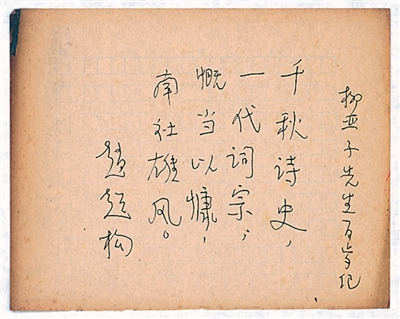 柳亚子先生百岁纪
千秋诗史，
一代词宗，
慨当以慷，
南社雄风。
趙超构